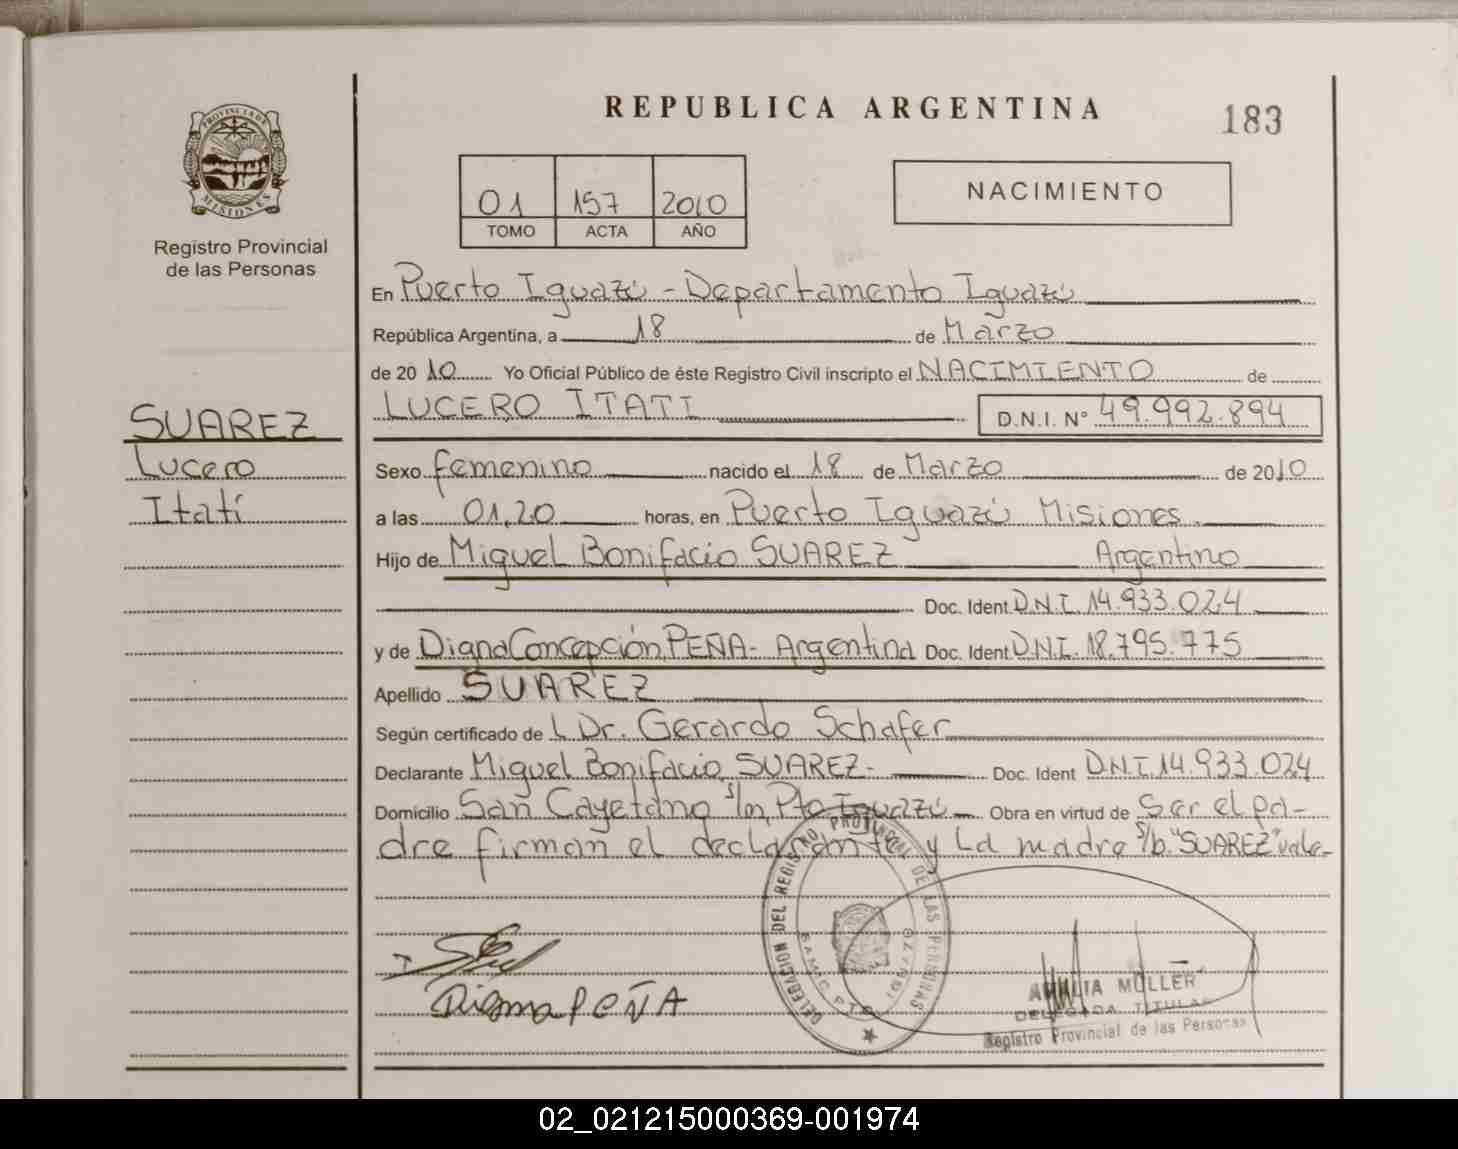 REPUBLICA ARGENTINA
183
PROVINCIA DE
MISIONES
Registro Provincial
de las Personas
01 157 2010
TOMO ACTA AÑO
NACIMIENTO
En Puerto Iguazú - Departamento Iguazú
República Argentina, a 18 de Marzo
de 2010 Yo Oficial Público de éste Registro Civil inscripto el NACIMIENTO de
LUCERO ITATI
D.N.I. Nº 49.992.894
SUAREZ
Lucero
Itatí
Sexo femenino nacido el 18 de Marzo de 2010
a las 01,20 horas, en Puerto Iguazú Misiones.
Hijo de Miguel Bonifacio SUAREZ Argentino
Doc. Ident D.N.I. 14.933.024
y de Digna Concepción PEÑA - Argentina Doc. Ident D.N.I. 18.795.775
Apellido SUAREZ
Según certificado de L Dr. Gerardo Schafer
Declarante Miguel Bonifacio SUAREZ - Doc. Ident D.N.I. 14.933.024
Domicilio San Cayetano s/n, Pto Iguazú Obra en virtud de Ser el pa-
dre firman el declarante y La madre s/b. "SUAREZ" vale-
DELEGACION DEL REGISTRO PROVINCIAL DE LAS PERSONAS
Digna PEÑA
AMALIA MÜLLER
DELEGADA TITULAR
Registro Provincial de las Personas
02_021215000369-001974